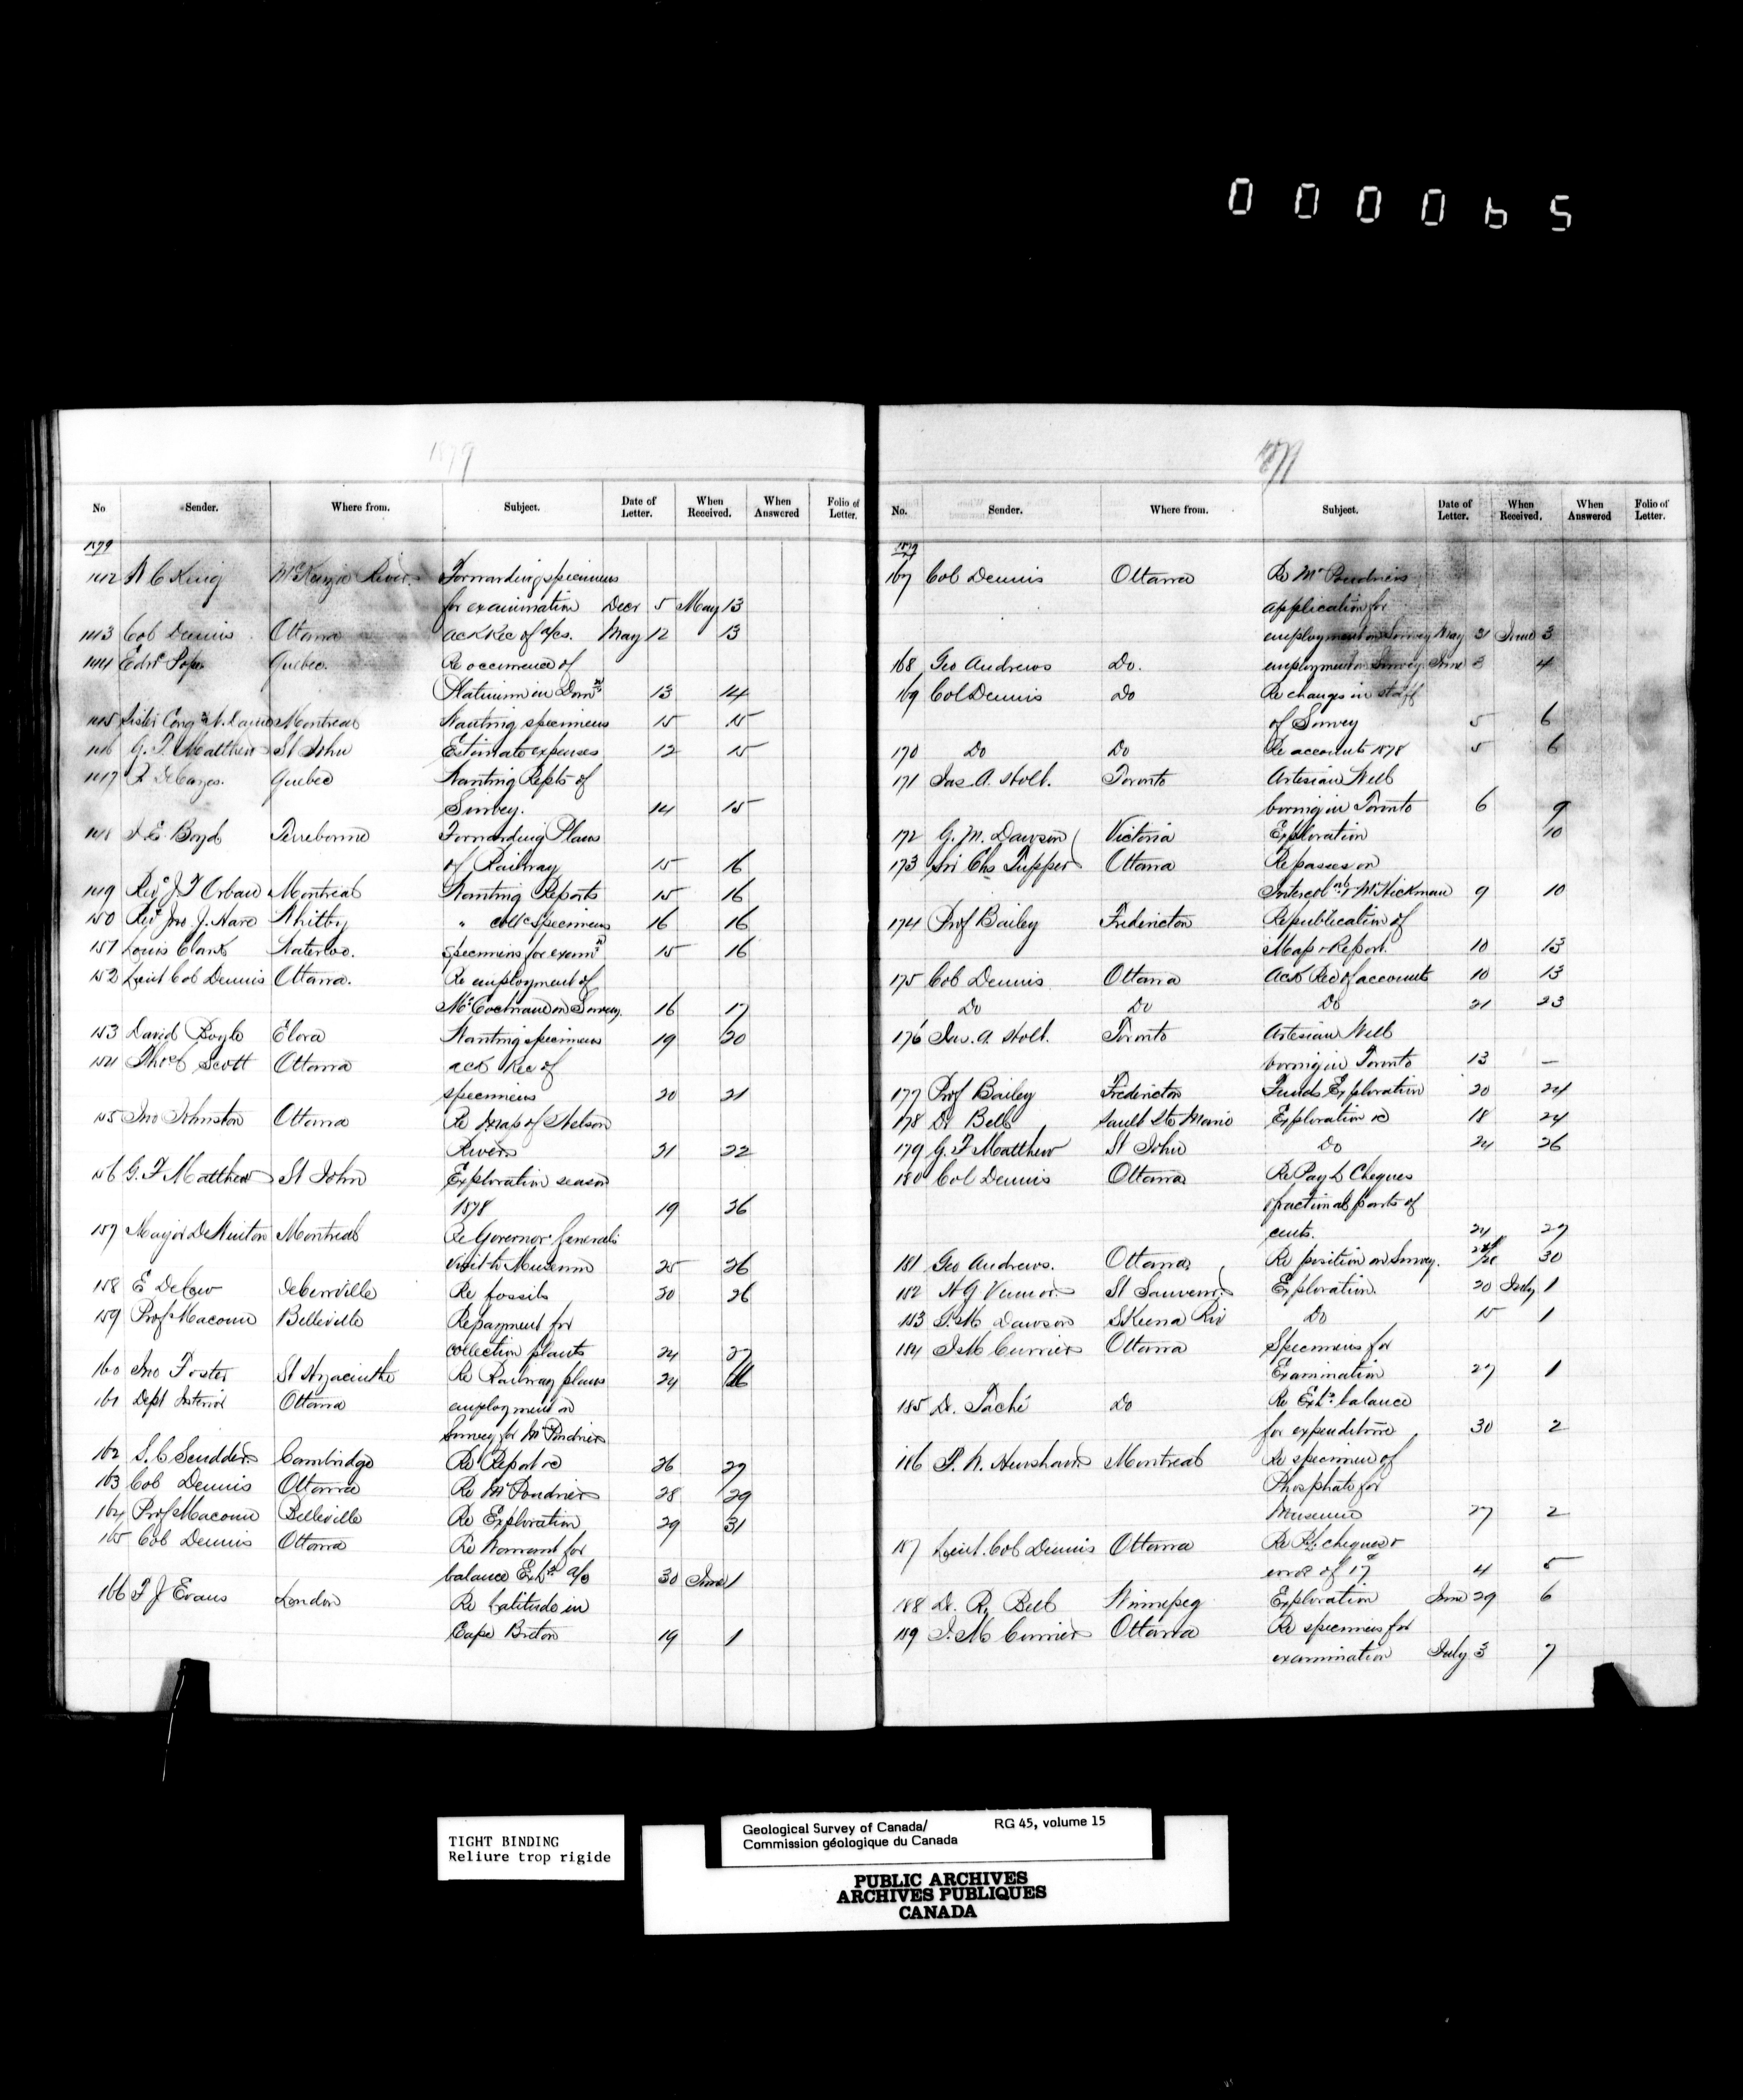 000065
1879
No Sender. Where from. Subject. Date of Letter. When Received. When Answered Folio of Letter.
1879
142 W C King McKenzie River. Forwarding specimens
for examination Decr 5 May 13
143 Col Dennis Ottawa ack Rec of a/cs. May 12 13
144 Edwd Quebec. Re occurrence of
Platinum in Domn 13 14
145 Sister Cong N. Dame Montreal Wanting specimens 15 15
146 G. F. Matthew St John Estimate expenses 12 15
147 Quebec Wanting Repts of
Survey. 14 15
148 J. E. Boyd Terrebonne Forwarding Plans
of Railway 15 16
149 Revd J F Orban Montreal Wanting Reports 15 16
150 Revd Jno J. Hare Whitby " collc specimens 16 16
151 Louis Clark Waterloo. Specimens for examn 15 16
152 Lieut Col Dennis Ottawa. Re employment of
Mr Cochrane on Survey. 16 17
153 David Boyle Elora Wanting specimens 19 20
154 Thos Scott Ottawa ack Rec of
specimens 20 21
155 Jno Johnston Ottawa Re map of Nelson
Rivers 21 22
156 G. F Matthew St John Exploration season
1878 19 26
157 Major De Winton Montreal Re Governor Generals
visit to Museum 25 26
158 E Re fossils 20 26
159 Prof Macoun Belleville Re payment for
collection plants 24 27
160 Jno Foster St Hyacinthe Re Railway plans 24 26
161 Dept Interior Ottawa employment on
Survey for Mr Poudrier
162 S. C Scudder Cambridge Re Report &c 26 27
163 Col Dennis Ottawa Re Mr Poudrier 28 29
164 Prof Macoun Belleville Re Exploration 29 31
165 Col Dennis Ottawa Re Warrant for
balance Exhn a/c 30 June 1
166 F J Evans London Re Latitude in
Cape Breton 19 1
1879
No. Sender. Where from. Subject. Date of Letter. When Received. When Answered Folio of Letter.
1879
167 Col Dennis Ottawa Re Mr Poudriers
application for
employment on Survey May 31 June 3
168 Geo Andrews Do. employment on Survey June 3 4
169 Col Dennis Do Re changes in staff
of Survey 5 6
170 Do Do Re accounts 1878 5 6
171 Jas. A. Holt. Toronto Artesian Well
boring in Toronto 6 9
172 G. M. Dawson Victoria Exploration 10
173 Sir Chs Tupper Ottawa Re passes on
Intercol Mr Hickman 9 10
174 Prof Bailey Fredericton Re publication of
Map & Report. 10 13
175 Col Dennis Ottawa ack Rec of accounts 10 13
Do Do Do 21 23
176 Jas. A. Holt. Toronto Artesian Well
boring in Toronto 13 —
177 Prof Bailey Fredericton Funds Exploration 20 24
178 Dr Bell Sault Ste Marie Exploration &c 18 24
179 G. F Matthew St John Do 24 26
180 Col Dennis Ottawa Re Cheques
& fractional parts of
cents. 24 27
181 Geo Andrews. Ottawa Re position on Survey. 28 30
182 H G Vennor St Sauveur Exploration. 20 July 1
183 G. M Dawson Skeena Riv Do 15 1
184 J M Currier Ottawa Specimens for
Examination 27 1
185 Dr. Taché Do Re Exhn balance
for expenditure 30 2
186 Henshaw Montreal Re specimen of
Phosphate for
Museum 27 2
187 Lieut. Col Dennis Ottawa Re cheques &
error of 17 4 5
188 Dr. R. Bell Winnepeg Exploration June 29 6
189 J. M Currier Ottawa Re specimens for
examination July 3 7
TIGHT BINDING
Reliure trop rigide
Geological Survey of Canada/ RG 45, volume 15
Commission géologique du Canada
PUBLIC ARCHIVES
ARCHIVES PUBLIQUES
CANADA